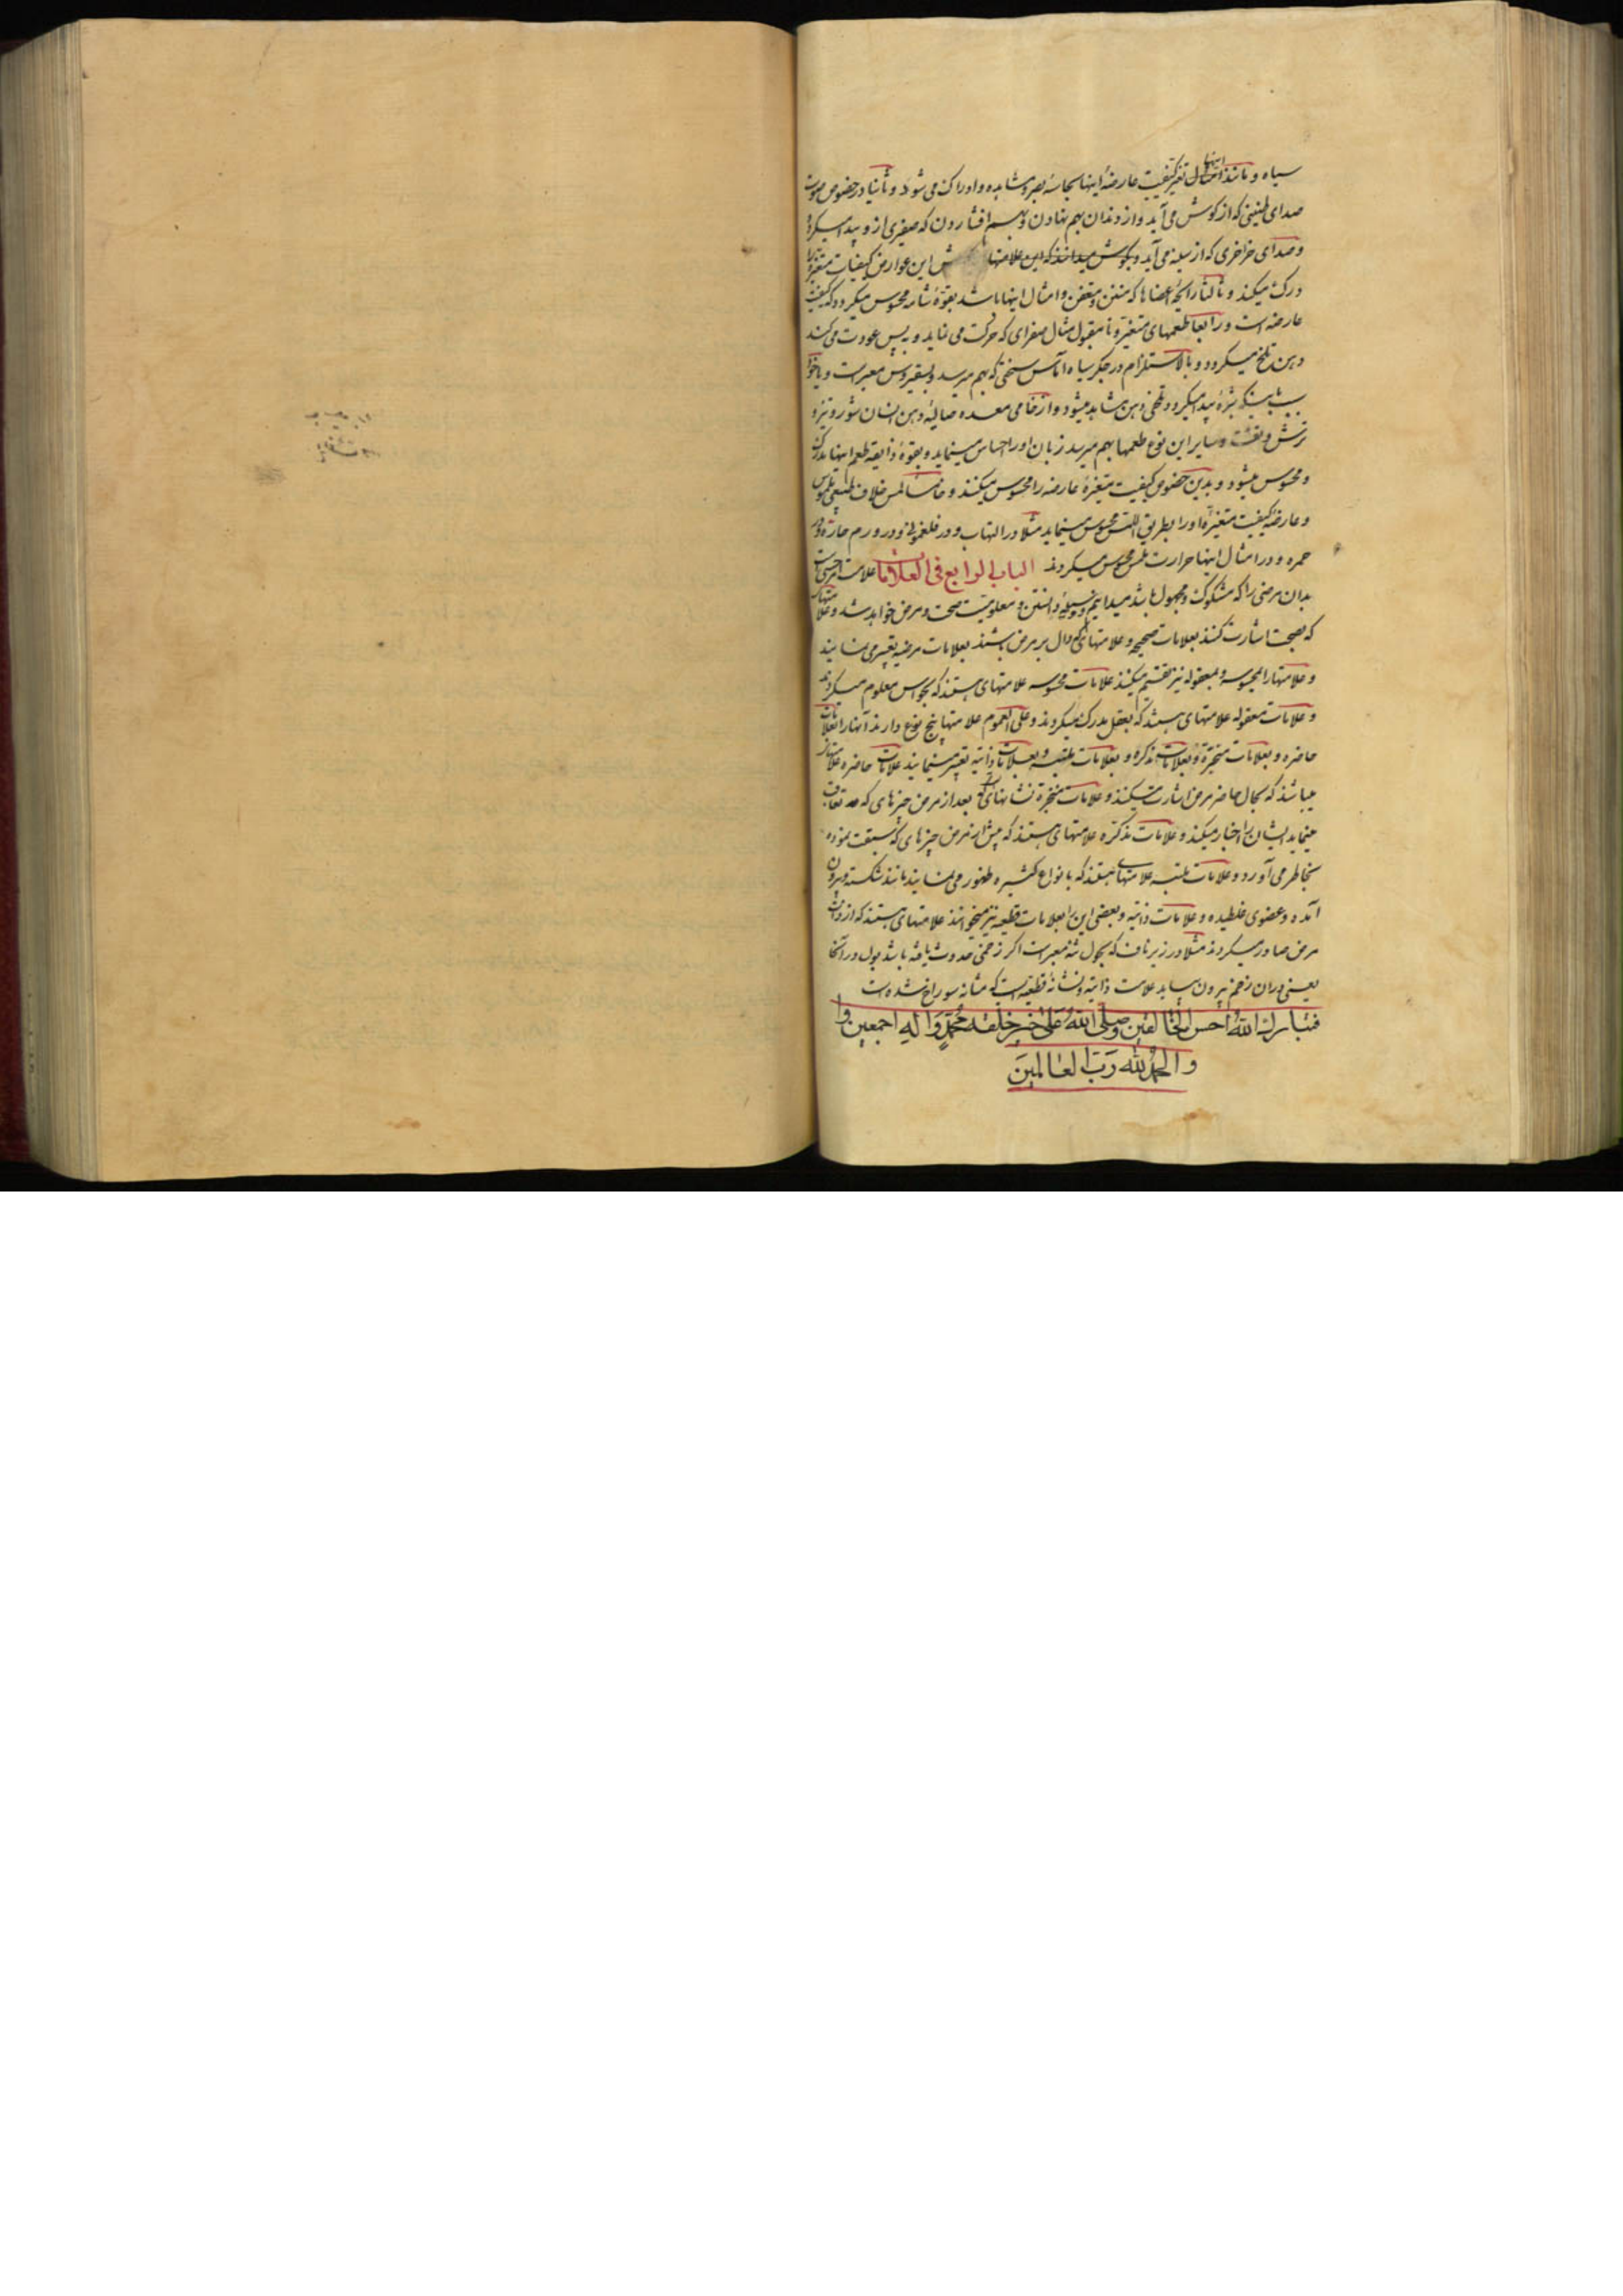 سیاه و مانند اینها تغیر کیفیت عارضهٔ اینها بحاسهٔ بصر مشاهده و ادراک می شود و ثانیا در خصوص صوت
صدای طنینی که از کوش می آید و از دندان بهم نهادن و بهم افشاردن که صفیری ازو پیدا میکردد
و صدای خراخری که از سینه می آید و بکوش میدانند که این علامتها این عوارض کیفیات متغیره را
درک میکند و ثالثا رایحهٔ اعضاها که منتن و متعفن و امثال اینها باشد بقوهٔ شامه محسوس میکردد که کیفیت
عارضه است و رابعا طعمهای متغیره و نامقبول مثال صفرای که حرکت می نماید و به پس عودت می کند
دهن تلخ میکردد و بالاستلزام در جکر سیاه آماس سختی که بهم میرسد و بسقیروس معبر است و یا خود
بسبب پیدا میکردد تلخی دهن مشاهد میشود و از خامی معده صالیهٔ دهن انسان شور و تیز و
ترش و سایر این نوع طعمها بهم میرسد زبان او را احساس مینماید و بقوهٔ ذایقه طعم اینها مدرک
و محسوس میشود و بدین خصوص کیفیت متغیرهٔ عارضه را محسوس میکنند و خامسا لمس خلاف طبیعی ملموس
و عارضهٔ کیفیت متغیرهٔ او را بطریق اللمس محسوس مینماید مثلا در التهاب و در فلغمونی و در ورم حاره و در
حمره و در امثال اینها حرارت بلمس محسوس میکردند الباب الرابع فی العلامات علامت
بدان مرضی را که مشکوک و مجهول باشد میدانیم و وسیلهٔ دانستن و معلومیت صحت و مرض خواهد شد و علامتهای
که بصحت اشارت کنند بعلامات صحیحه و علامتهای که دال بر مرض باشند بعلامات مرضیه تعبیر می نمایند
و علامتها را بمحسوسه و بمعقوله نیز تقسیم میکنند علامات محسوسه علامتهای هستند که بحواس معلوم میکردند
و علامات معقوله علامتهای هستند که بعقل مدرک میکردند و علی العموم علامتها پنج نوع دارند آنها را بعلامات
حاضره و بعلامات مخبره و بعلامات مذکره و بعلامات ملتبسه و بعلامات ذاتیه تعبیر مینمایند علامات حاضره علامتها
میباشند که بحال حاضر مرض اشارت میکنند و علامات مخبره نشانهای که بعد از مرض چیزهای که تعاقب
مینماید ایشان را اخبار میکند و علامات مذکره علامتهای هستند که پیش از مرض چیزهای که سبقت نموده
بخاطر می آورد و علامات ملتبسه علامتهای هستند که بانواع کثیره ظهور می نمایند مانند شکسته و بیرون
آمده و عضوی غلطیده و علامات ذاتیه و بعضی این را بعلامات قطعیه نیز میخوانند علامتهای هستند که از ذات
مرض صادر میکردند مثلا در زیر ناف که بحول ثنه معبر است اکر زخمی حدوث یافته باشد بول در آنجا
یعنی در آن زخم بیرون بیاید علامت ذاتیه و نشانهٔ قطعیه است که مثانه سوراخ شده است
فتبارک الله احسن الخالقین وصلی الله علی خیر خلقه محمد واله اجمعین
والحمد لله رب العالمین